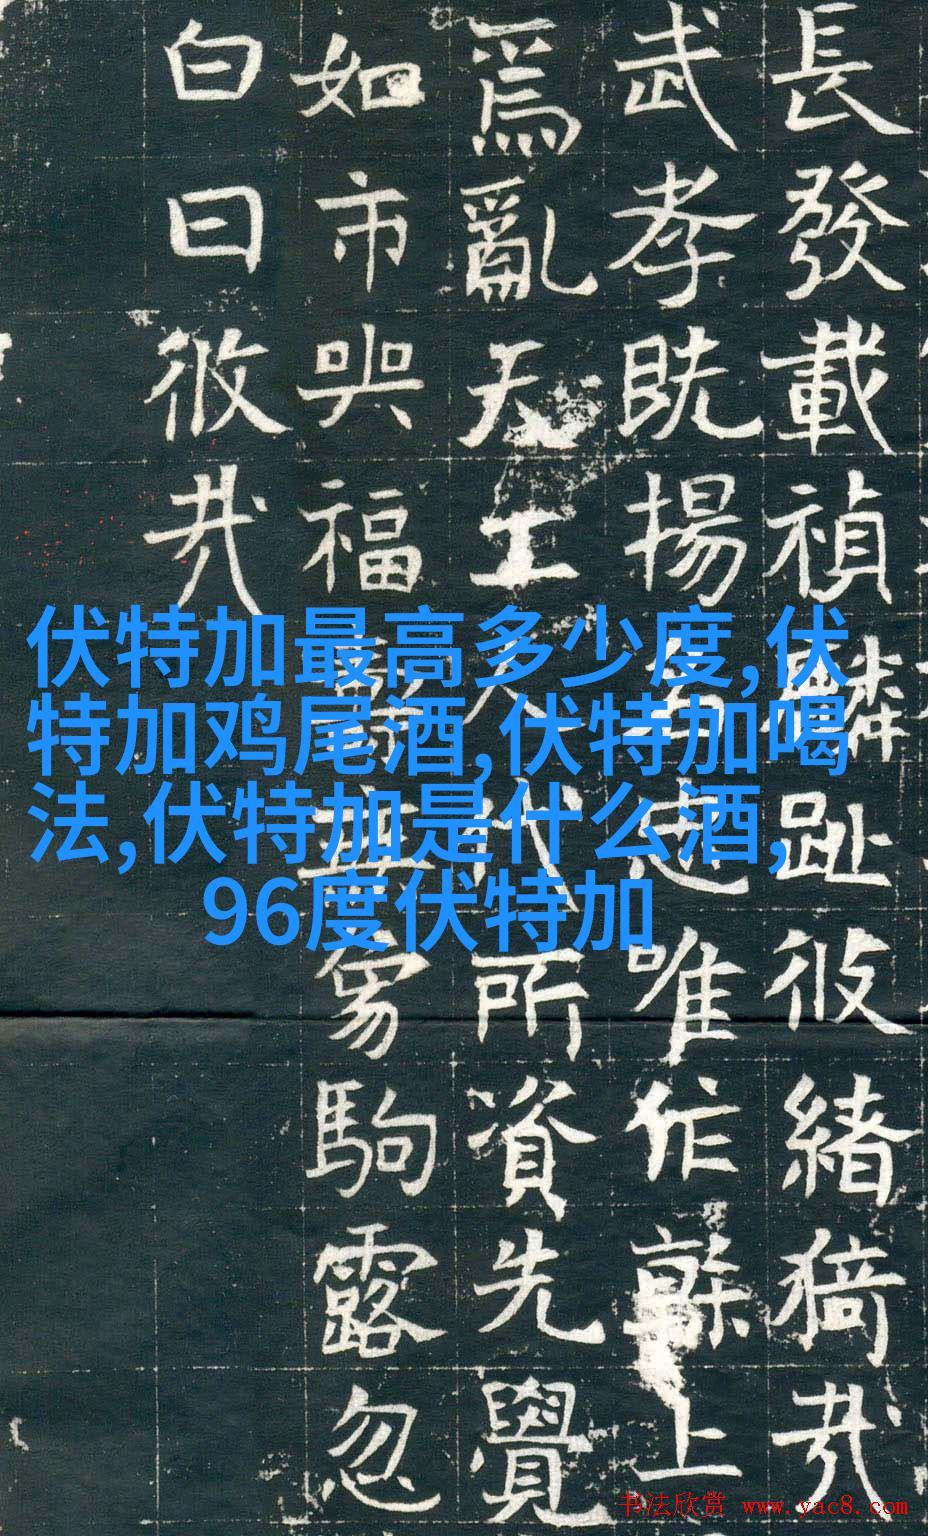 長發載禎麟趾彼緒猗哉
武孝既揚名忠唯作辭上
爲亂天工人代所資先覺
如市與福駒露忽
白日彼哉
伏特加最高多少度,伏
特加鸡尾酒,伏特加喝
法,伏特加是什么酒,
96度伏特加
书法欣赏 www.yac8.com